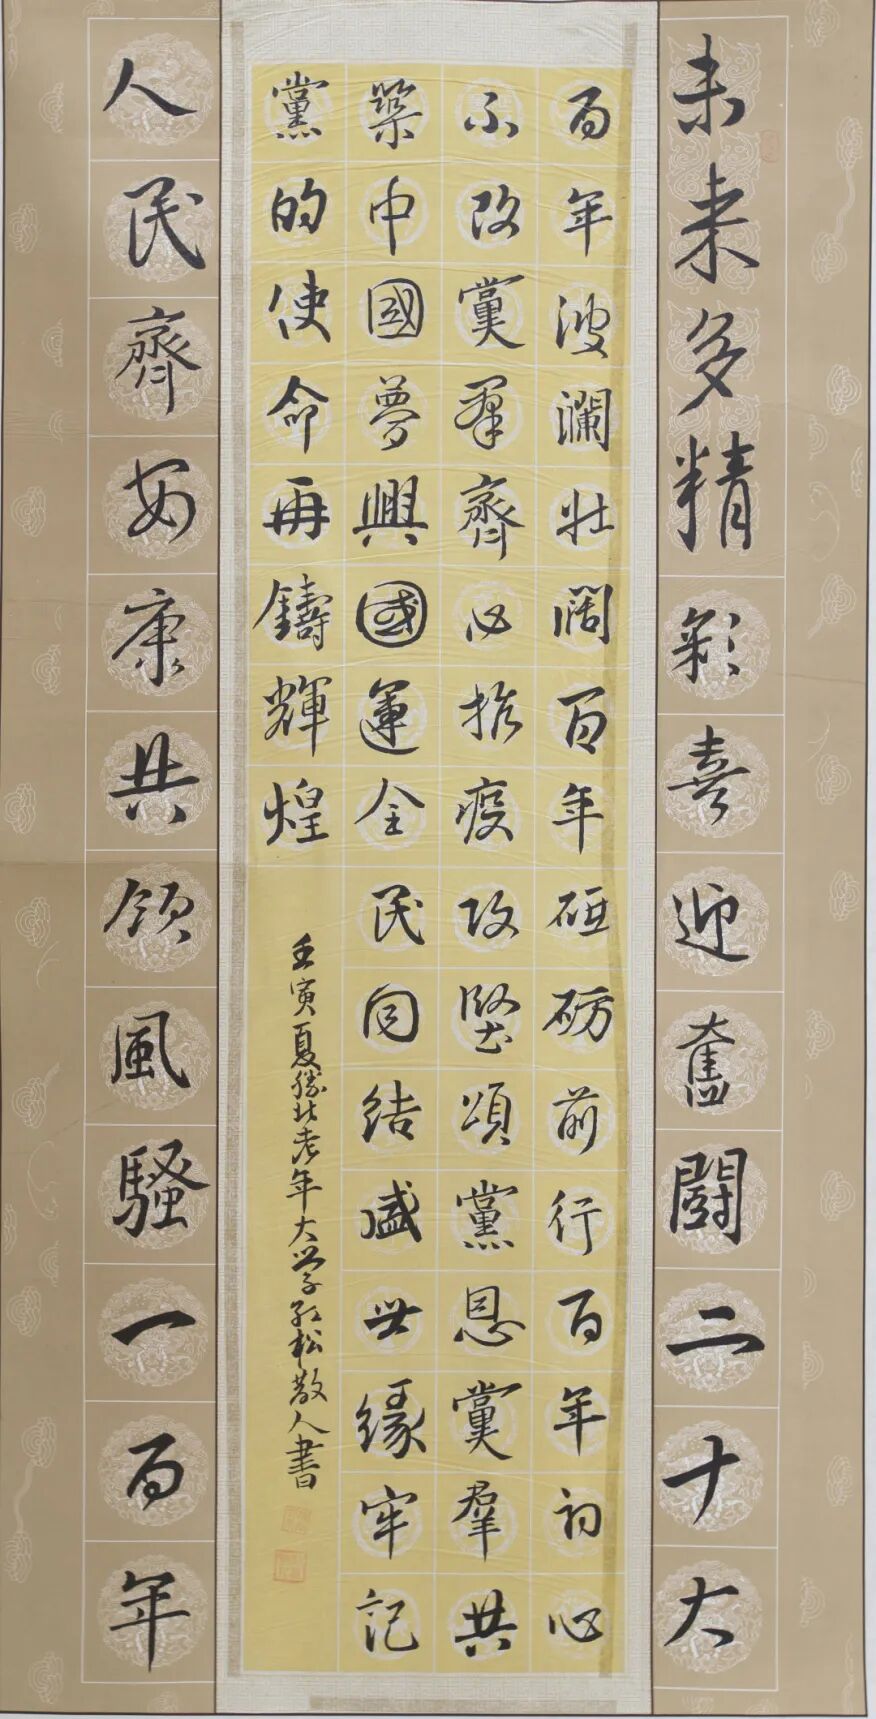 未来多精彩喜迎奮闘二十大
百年波瀾壮阔百年砥砺前行百年初心
不改黨羣齊心抗疫攻堅頌黨恩黨羣共
築中國夢興國運全民同結盛世緣牢記
黨的使命再鑄輝煌
壬寅夏勝北老年大学松散人書
人民齊安康共領風騷一百年